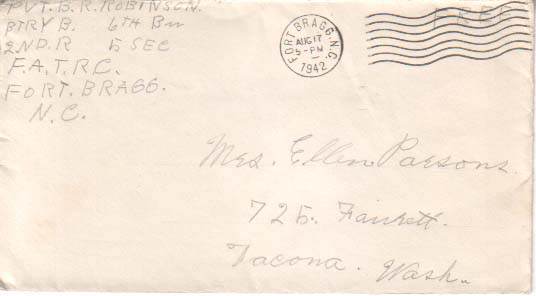 PVT. B. R. ROBINSON.
BTRY B. 6TH Bn
2ND. R 5 SEC
F.A.T.R.C.
FORT. BRAGG.
N.C.
FORT BRAGG, N.C.
AUG 17
5-PM
1942
FREE
Mrs. Ellen Parsons.
725. Fawcett.
Tacoma. Wash.